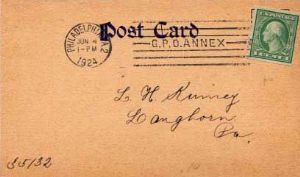 Post Card
PHILADELPHIA, PA. 2
JUN 4
1-PM
1924
G.P.O. ANNEX
L. H. Kinney
Langhorn
Pa.